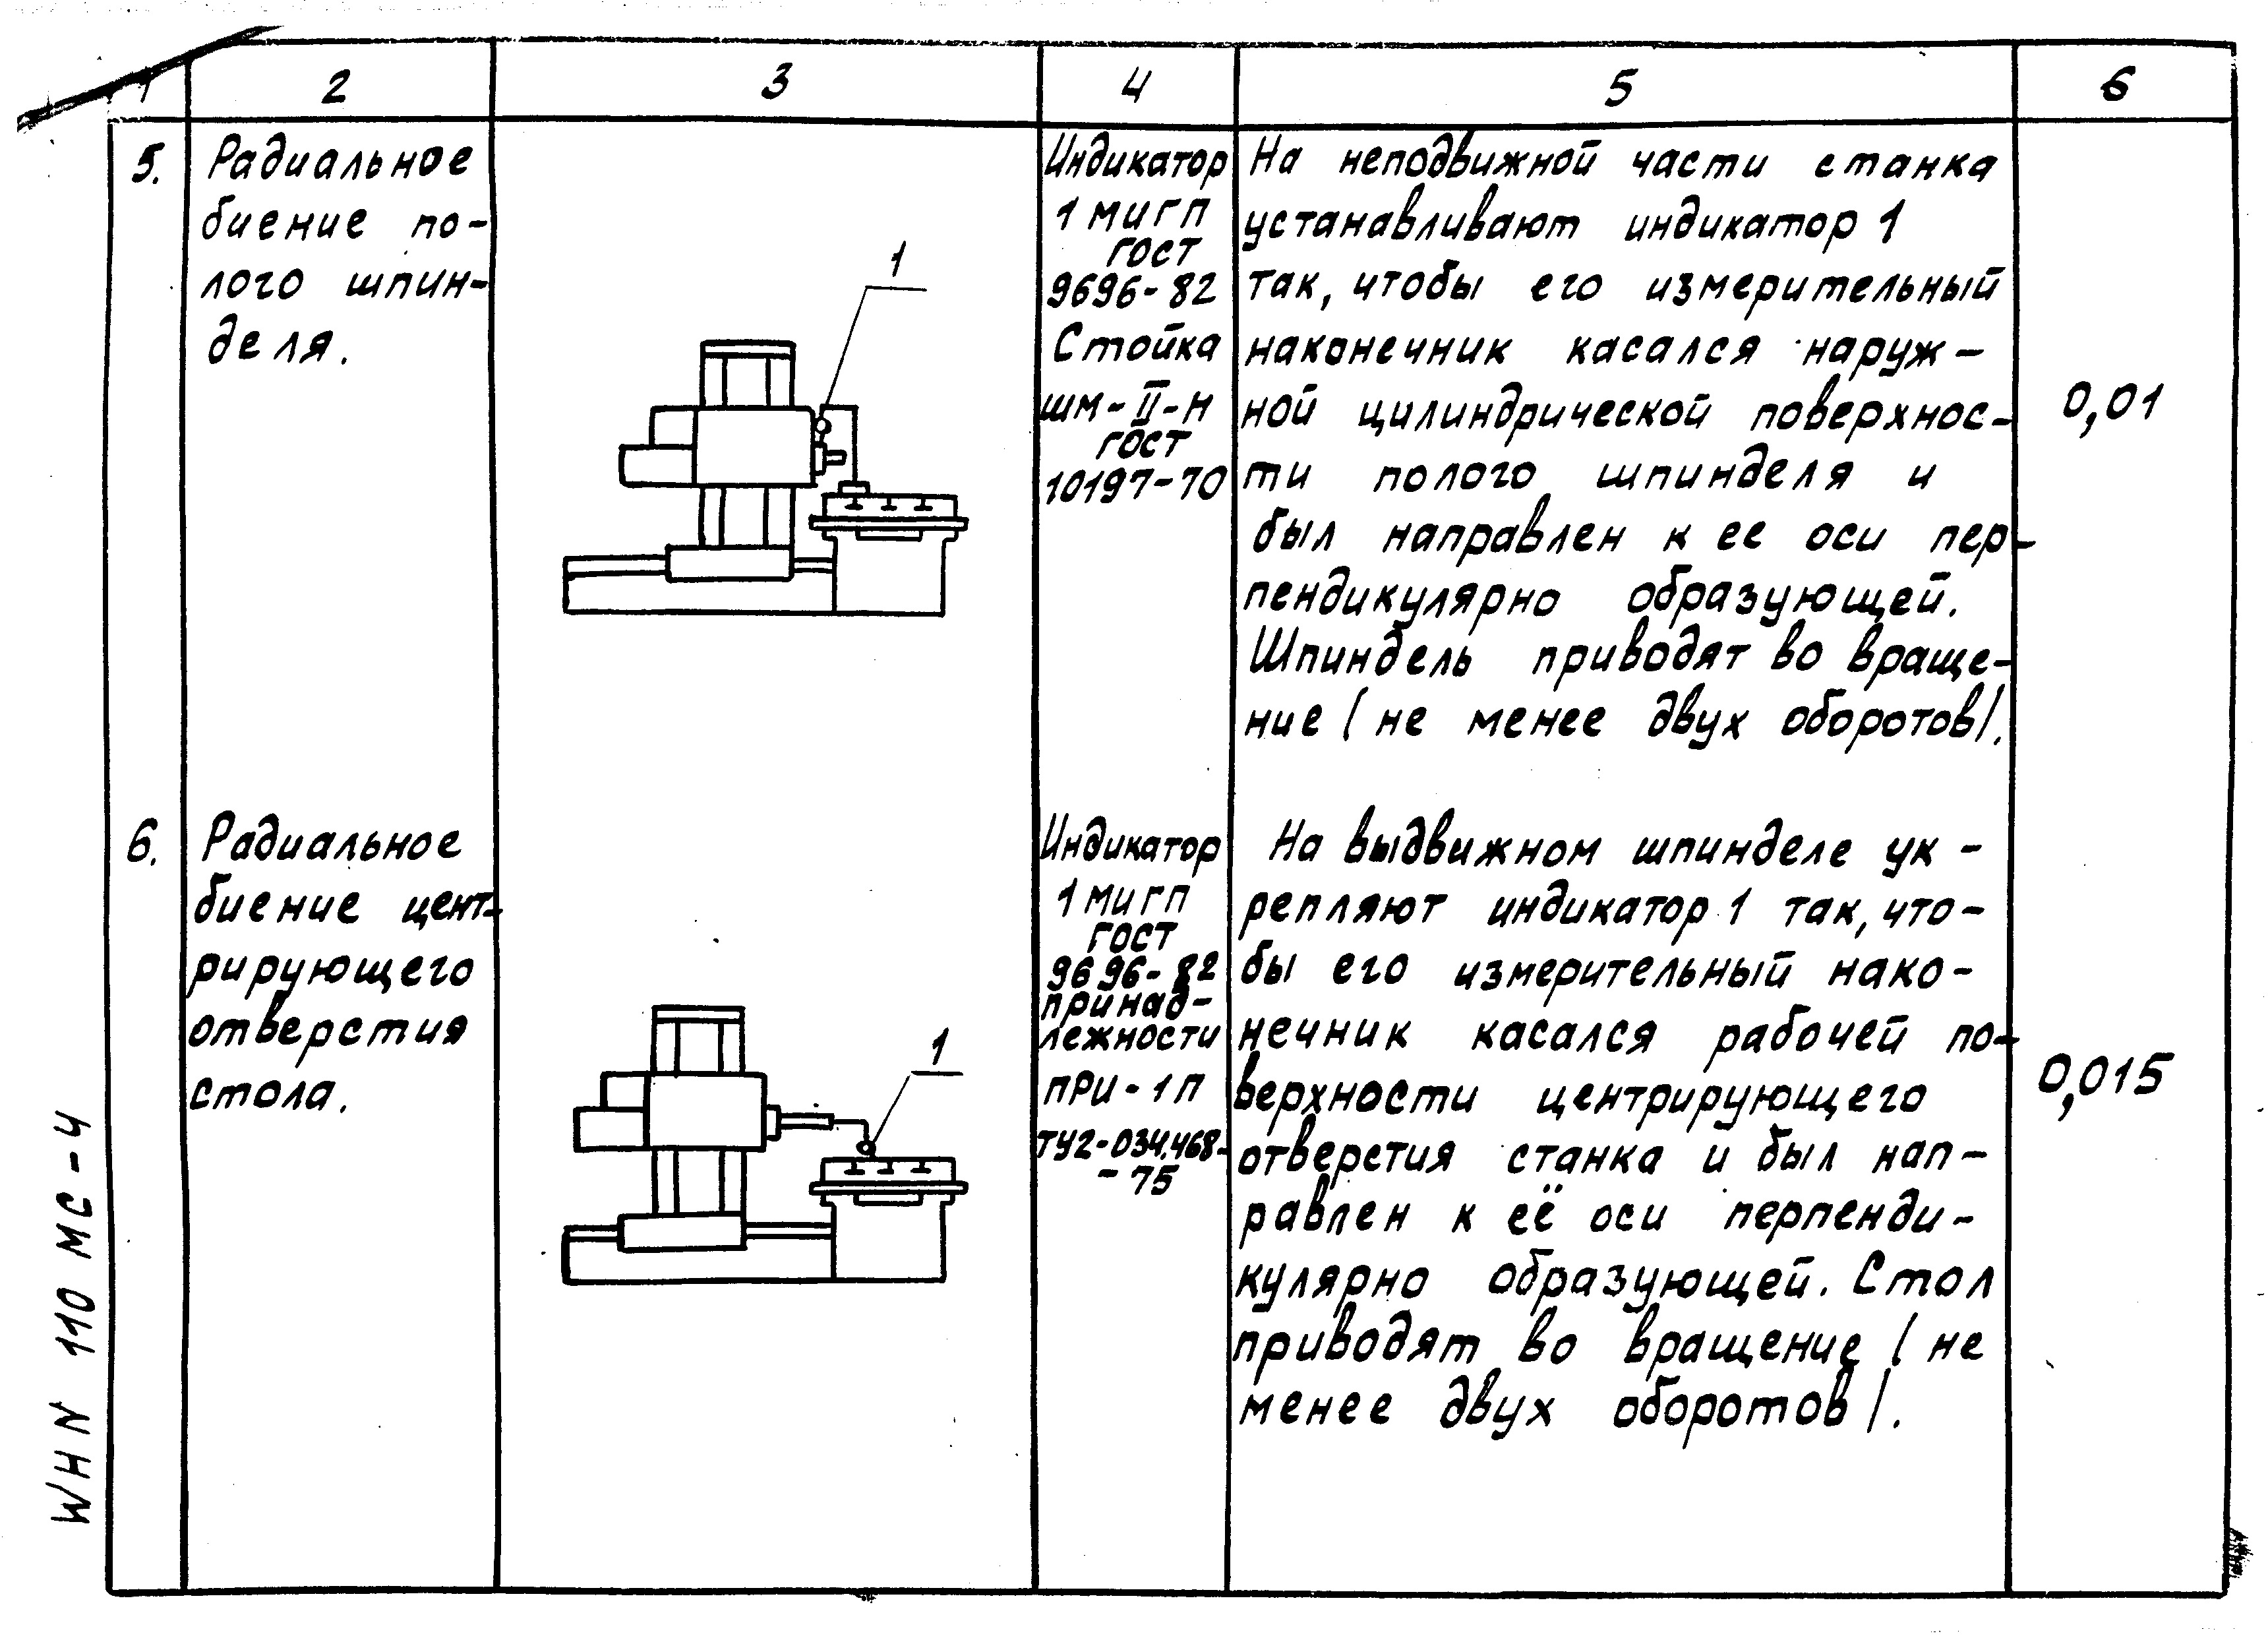 1 2 3 4 5 6
5.
Радиальное
биение по-
лого шпин-
деля.
1
Индикатор
1 МИГП
ГОСТ
9696-82
Стойка
ШМ-II-Н
ГОСТ
10197-70
На неподвижной части станка
устанавливают индикатор 1
так, чтобы его измерительный
наконечник касался наруж-
ной цилиндрической поверхнос-
ти полого шпинделя и
был направлен к ее оси пер-
пендикулярно образующей.
Шпиндель приводят во враще-
ние (не менее двух оборотов).
0,01
6.
Радиальное
биение цент-
рирующего
отверстия
стола.
1
Индикатор
1 МИГП
ГОСТ
9696-82
принад-
лежности
ПРИ-1П
ТУ2-034.468-
-75
На выдвижном шпинделе ук-
репляют индикатор 1 так, что-
бы его измерительный нако-
нечник касался рабочей по-
верхности центрирующего
отверстия станка и был нап-
равлен к её оси перпенди-
кулярно образующей. Стол
приводят во вращение (не
менее двух оборотов).
0,015
WHN 110 MC-4